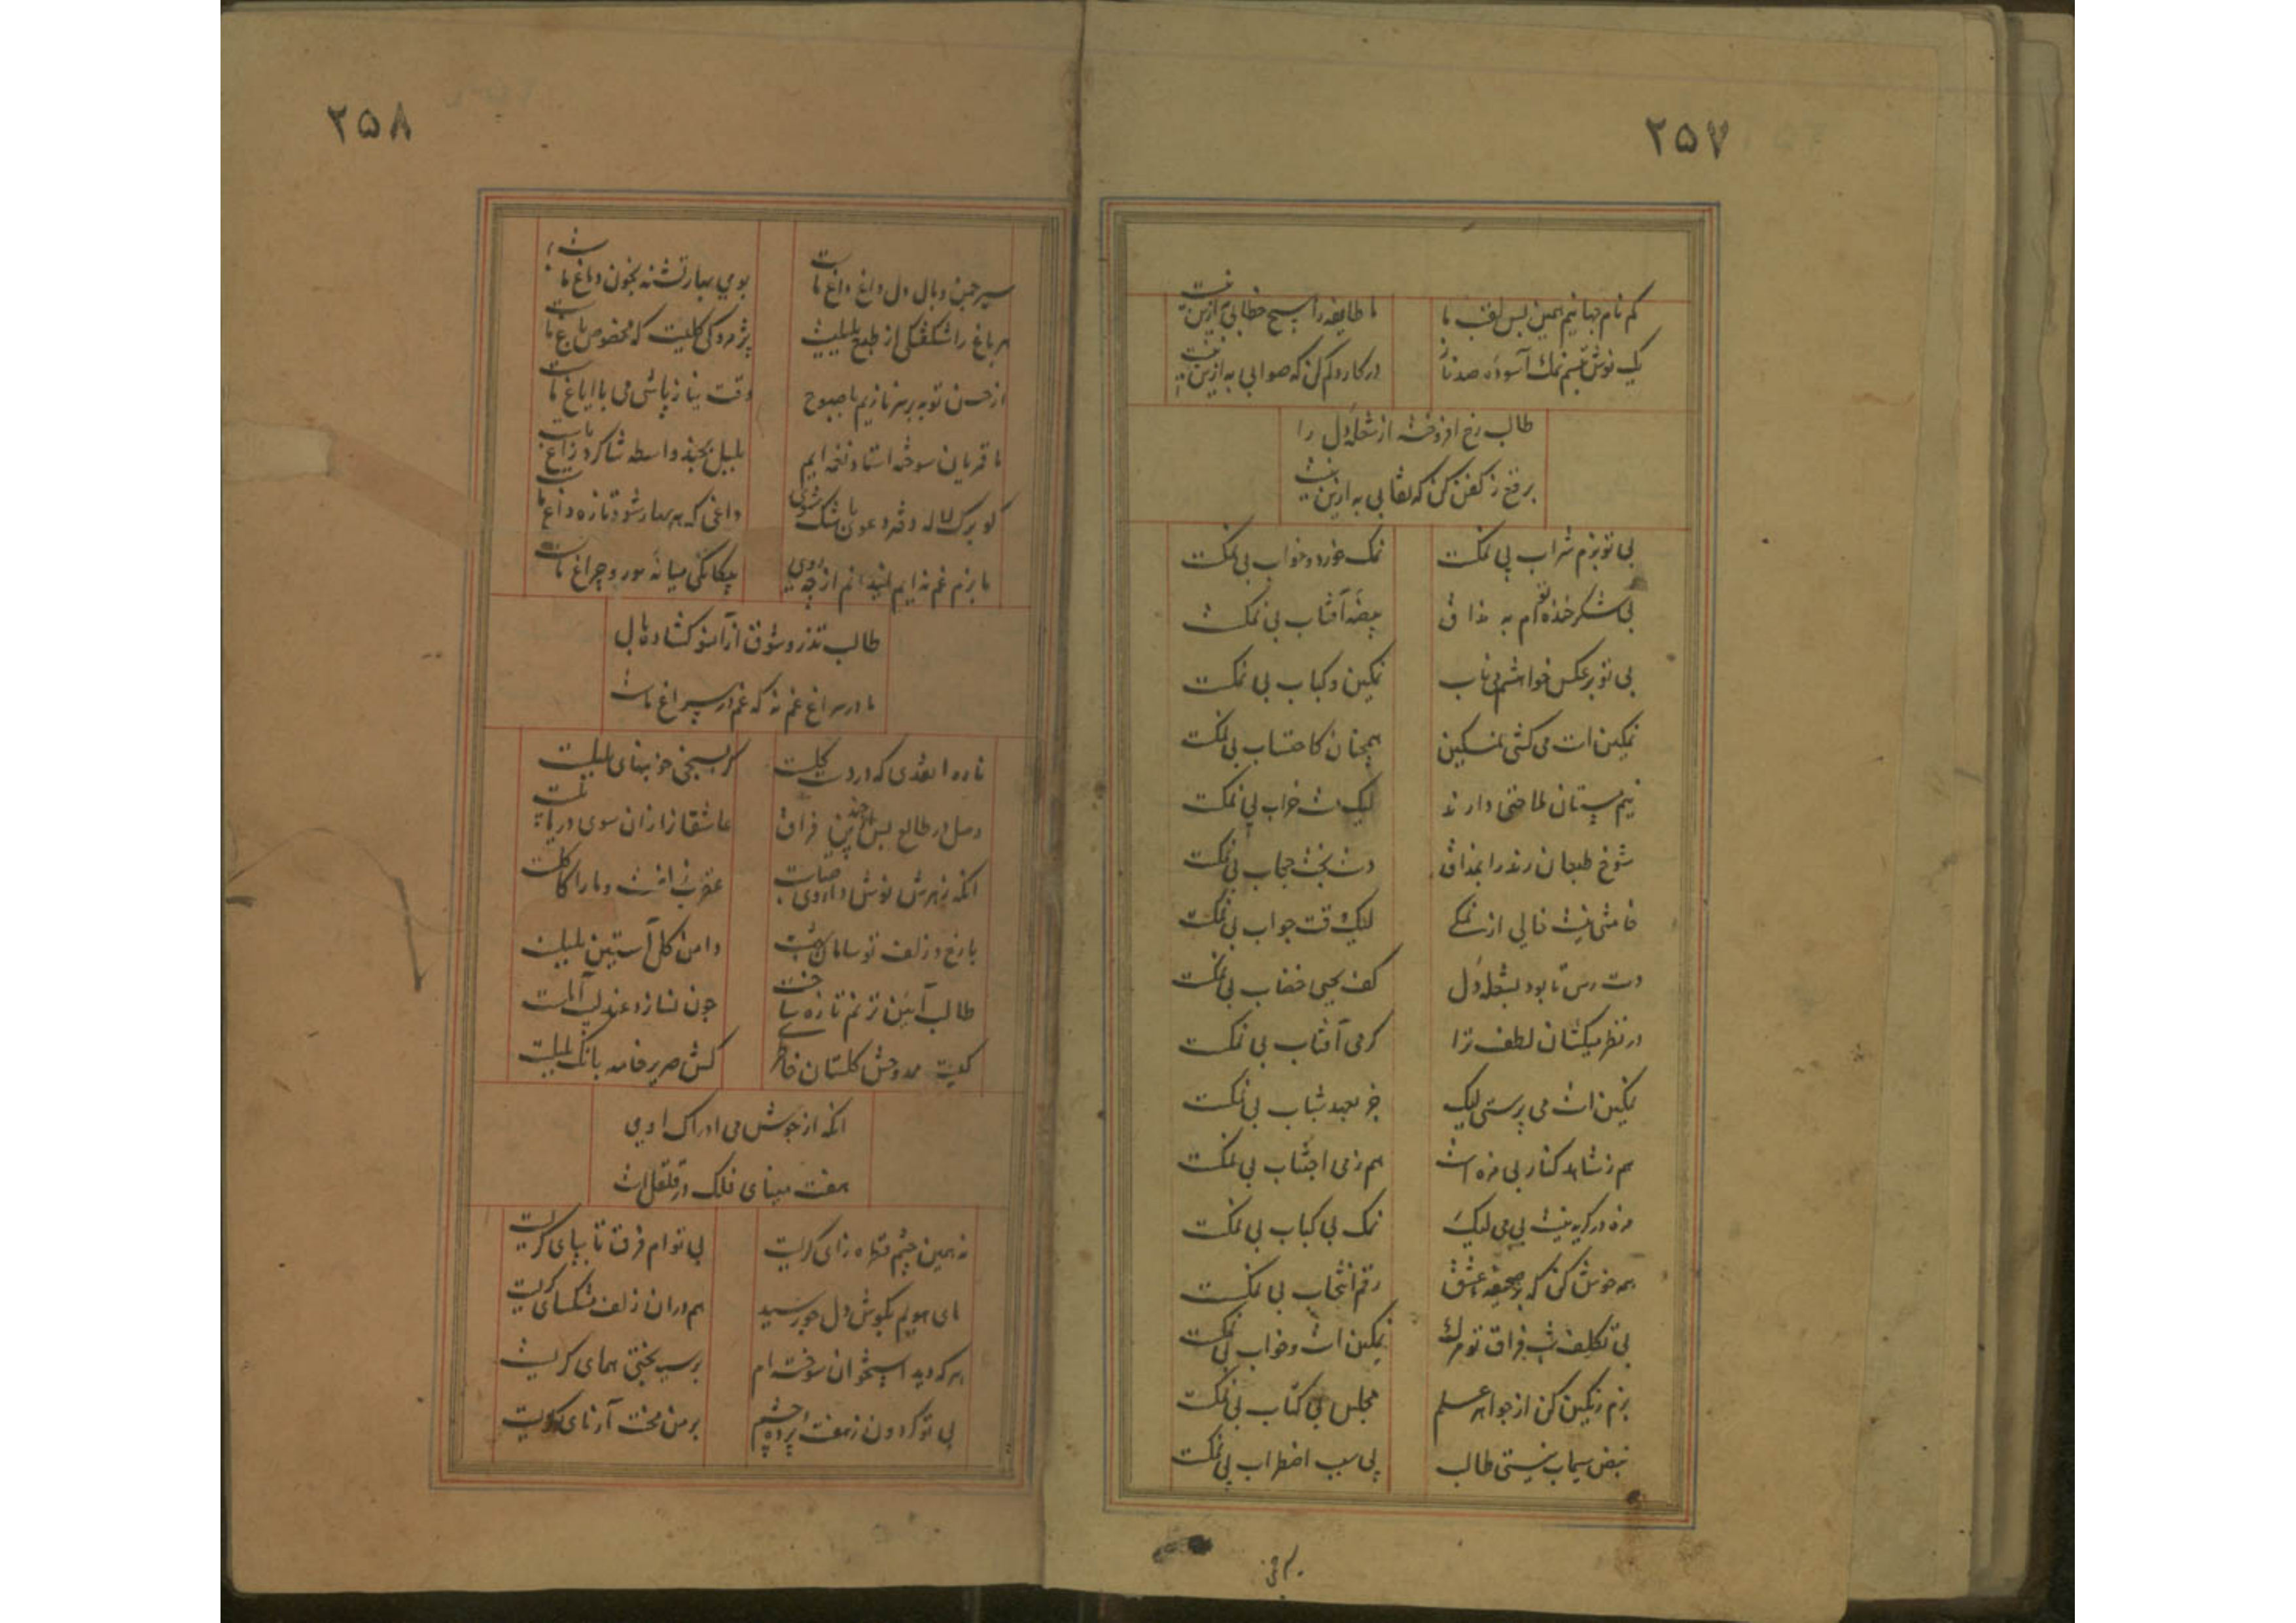 ۲۵۷
کم نام جهانیم همین بس لقب ما
ما طایفه را هیچ خطابی به ازین نیست
یک نوش تبسم نمک آسوده صد ناز
در کار دلم کن که صوابی به ازین نیست
طالب رخ افروخته از شعله دل را
برقع ز کفن کن که نقابی به ازین نیست
بی تو بزم شراب بی نمکست
نمک خورد و خواب بی نمکست
بی شکر خنده توام به مذاق
بیضه آفتاب بی نمکست
بی تو بر عکس خواهشم می ناب
نمکین و کباب بی نمکست
نمکین است می کشی لیکن
همچنان کاحتساب بی نمکست
نیم مستان ملاحتی دارند
لیک مست خراب بی نمکست
شوخ طبعان رند را بمذاق
دست بخت حجاب بی نمکست
خامشی نیست خالی از نمکی
لیک وقت جواب بی نمکست
دست رس تا بود بشعله دل
کف بحیی خضاب بی نمکست
در نظر میکشان لطف ترا
کرمی آفتاب بی نمکست
نمکین است می پرستی لیک
جز بعهد شباب بی نمکست
هم ز شاهد کنار بی مزه است
هم ز می اجتناب بی نمکست
مزه در کریه نیست بی می لیک
نمک بی کباب بی نمکست
همه خوش کن که بر صحیفه عشق
رقم انتخاب بی نمکست
بی تکلف شب فراق تو مرک
نمکین است و خواب بی نمکست
بزم رنکین کن از جواهر علم
مجلس بی کتاب بی نمکست
نبض سیماب نیستی طالب
بی سبب اضطراب بی نمکست
۲۵۸
سیر چمن وبال دل داغ داغ ماست
بوی بهار تشنه بخون دماغ ماست
هر باغ را شکفتکی از طبع بلبلیست
پژمردکی کلیست که مخصوص باغ ماست
از حسن توبه بر سر نازیم تا صبوح
وقت نیاز پاشی می با ایاغ ماست
ما قمریان سوخته استاد نغمه ایم
بلبل بچند واسطه شاکرد زاغ ماست
کو برک لاله دفتر دعوی بخشک شوی
داغی که هر بهار شود تازه داغ ماست
ما بزم غم نه ایم ندانم از چه روی
بیکانکی میانه سور و چراغ ماست
طالب تذرو شوق از آنسو کشاده بال
ما در سراغ غم نه که غم در سراغ ماست
وصل در طالع بس
عاشقانرا زان سوی دریا
انکه زهرش نوش داروی حیات
با رخ و زلف تو سامان بهشت
دامن کل آستین سنبلست
طالب آیین ترنم تازه ساخت
چون نسازد عندلیب آملست
کیست مدوحش کلستان خاطری
کش صریر خامه بانک بلبلست
انکه از جوش می ادراک او
هفت مینای فلک در قلقل است
نه همین چشم قطره زای کریست
بی توام فرق تا بپای کریست
های هویم بکوش دل چو رسید
هم دران زلف مشکسای کریست
هر که دید استخوان سوخته ام
بر سیه بختی همای کریست
بی تو کردون ز هفت پرده چشم
بر من محنت آزمای کریست